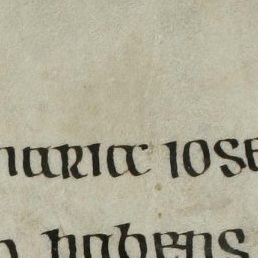 maria iose
habens